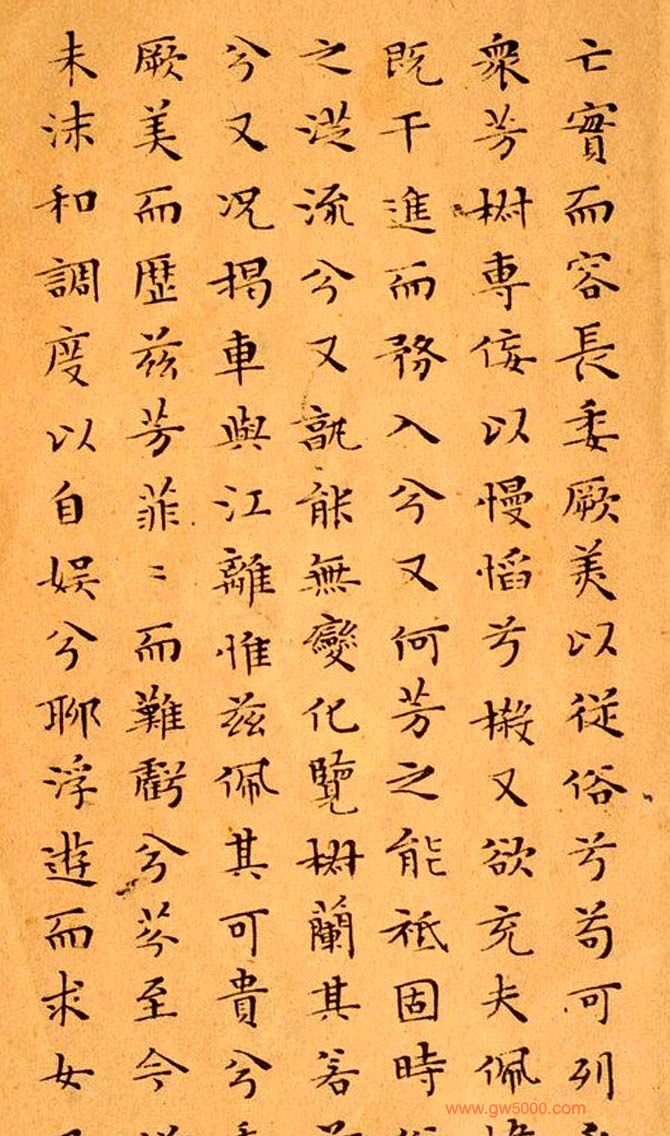 亡實而容長委厥美以從俗兮苟可列
衆芳樹專佞以慢慆兮樧又欲充夫佩
既干進而務入兮又何芳之能祗固時
之從流兮又孰能無變化覽樹蘭其若
兮又况揭車與江離惟兹佩其可貴兮
厥美而歷兹芳菲〻而難虧兮芬至今
未沫和調度以自娱兮聊浮遊而求女
www.gw5000.com